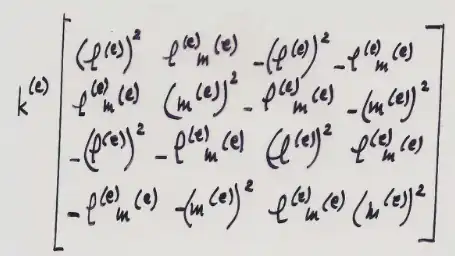 (ℓ^(e))^2 ℓ^(e) m^(e) -(ℓ^(e))^2 -ℓ^(e) m^(e)
k^(e) ℓ^(e) m^(e) (m^(e))^2 -ℓ^(e) m^(e) -(m^(e))^2
-(ℓ^(e))^2 -ℓ^(e) m^(e) (ℓ^(e))^2 ℓ^(e) m^(e)
-ℓ^(e) m^(e) -(m^(e))^2 ℓ^(e) m^(e) (m^(e))^2